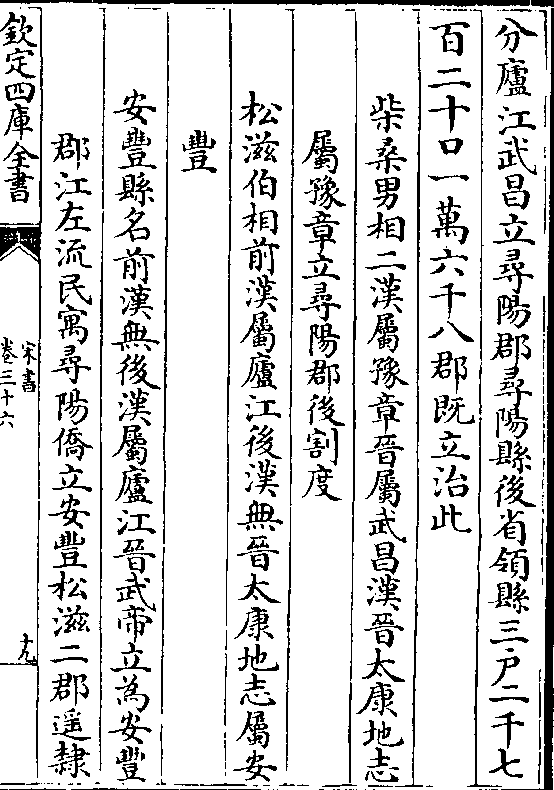 分廬江武昌立尋陽郡尋陽縣後省領縣三戶二千七
百二十口一萬六千八郡既立治此
柴桑男相二漢屬豫章晉屬武昌漢晉太康地志
屬豫章立尋陽郡後割度
松滋伯相前漢屬廬江後漢無晉太康地志屬安
豐
安豐縣名前漢無後漢屬廬江晉武帝立為安豐
郡江左流民寓尋陽僑立安豐松滋二郡遥隸
欽定四庫全書
宋書
卷三十六
十九